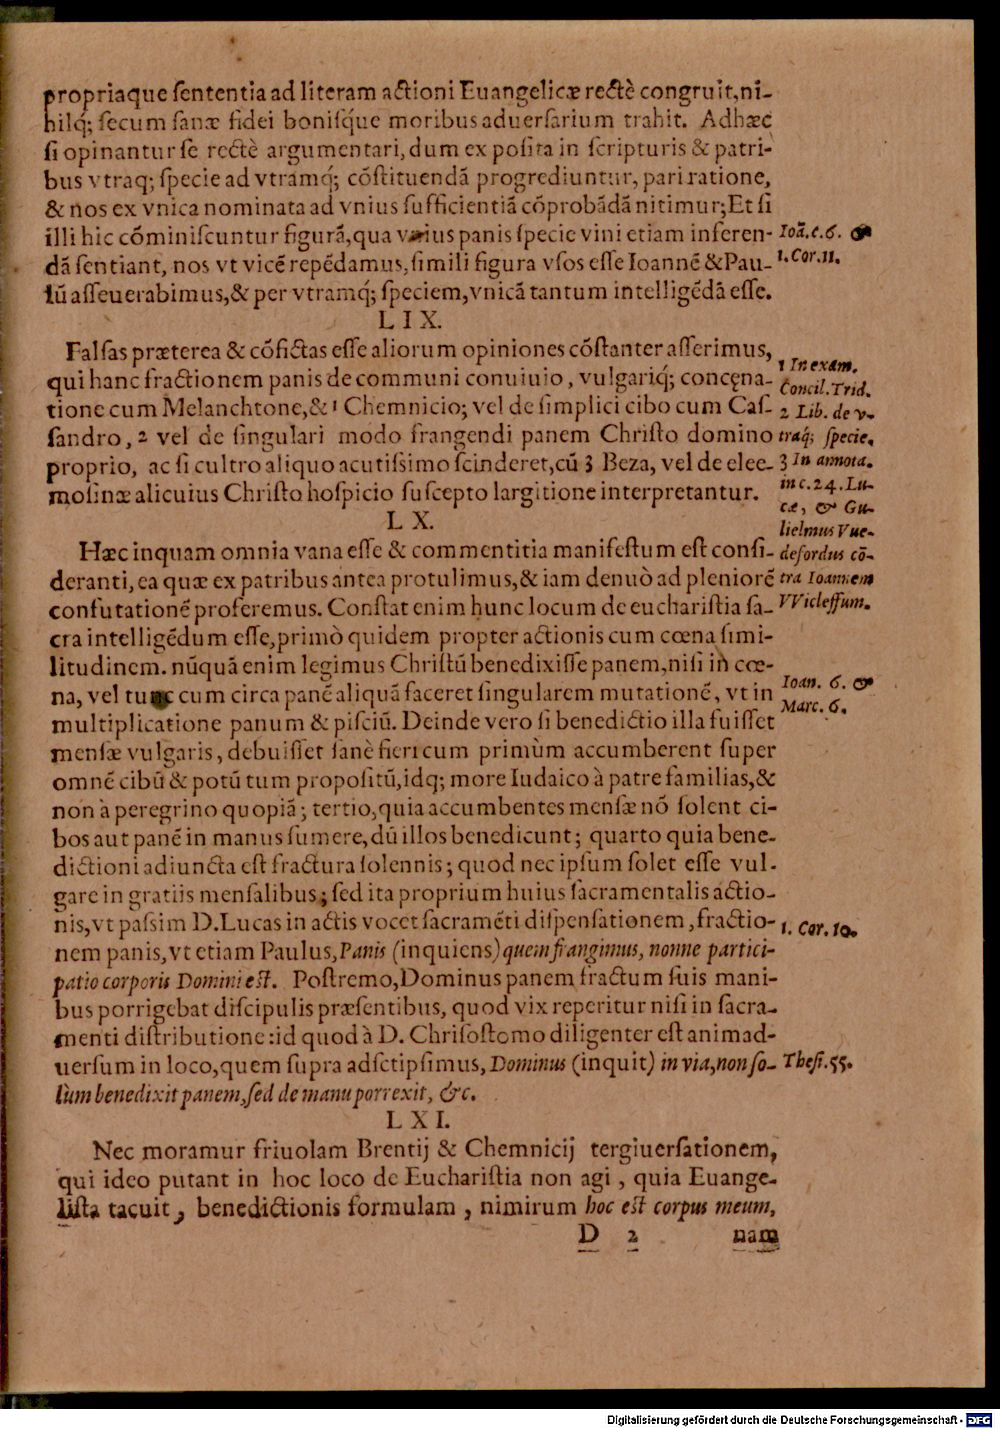 propriaque ſententia ad literam actioni Euangelicæ rectè congruit, ni-
hilq́; ſecum ſanæ fidei boniſq́ue moribus aduerſarium trahit. Adhæc
ſi opinantur ſe rectè argumentari, dum ex poſita in ſcripturis & patri-
bus vtraq; ſpecie ad vtramq́; cõſtituendã progrediuntur, pari ratione,
& nos ex vnica nominata ad vnius ſufficientiã cõprobãdã nitimur; Et ſi
illi hic cõminiſcuntur figurã, qua vnius panis ſpecie vini etiam inferen-
Ioã. c. 6. &
dã ſentiant, nos vt vicẽ repẽdamus, ſimili figura vſos eſſe Ioannẽ & Pau-
1. Cor. 11.
lũ aſſeuerabimus, & per vtramq́; ſpeciem, vnicã tantum intelligẽdã eſſe.
LIX.
Falſas præterea & cõfictas eſſe aliorum opiniones cõſtanter aſſerimus,
qui hanc fractionem panis de communi conuiuio, vulgariq́; concęna-
tione cum Melanchtone, & 1 Chemnicio; vel de ſimplici cibo cum Caſ-
ſandro, 2 vel de ſingulari modo frangendi panem Chriſto domino
proprio, ac ſi cultro aliquo acutiſsimo ſcinderet, cũ 3 Beza, vel de elee-
moſinæ alicuius Chriſto hoſpicio ſuſcepto largitione interpretantur.
1 In exam.
Concil. Trid.
2 Lib. de v-
traq́; ſpecie.
3 In annota.
in c. 24. Lu-
cæ, & Gu-
lielmus Vue-
defordus cõ-
tra Ioannem
VVicleffum.
LX.
Hæc inquam omnia vana eſſe & commentitia manifeſtum eſt conſi-
deranti, ea quæ ex patribus antea protulimus, & iam denuò ad pleniorẽ
confutationẽ proferemus. Conſtat enim hunc locum de euchariſtia ſa-
cra intelligẽdum eſſe, primò quidem propter actionis cum cœna ſimi-
litudinem. nũquã enim legimus Chriſtũ benedixiſſe panem, niſi in cœ-
na, vel tunc cum circa panẽ aliquã faceret ſingularem mutationẽ, vt in
Ioan. 6. &
multiplicatione panum & piſciũ. Deinde vero ſi benedictio illa fuiſſet
Marc. 6.
menſæ vulgaris, debuiſſet ſanè fieri cum primùm accumberent ſuper
omnẽ cibũ & potũ tum propoſitũ, idq; more Iudaico à patre familias, &
non à peregrino quopiã; tertio, quia accumbentes menſæ nõ ſolent ci-
bos aut panẽ in manus ſumere, dũ illos benedicunt; quarto quia bene-
dictioni adiuncta eſt fractura ſolennis; quod nec ipſum ſolet eſſe vul-
gare in gratiis menſalibus; ſed ita proprium huius ſacramentalis actio-
nis, vt paſsim D. Lucas in actis vocet ſacramẽti diſpenſationem, fractio-
1. Cor. 10.
nem panis, vt etiam Paulus, Panis (inquiens) quem frangimus, nonne partici-
patio corporis Domini eſt. Poſtremo, Dominus panem fractum ſuis mani-
bus porrigebat diſcipulis præſentibus, quod vix reperitur niſi in ſacra-
menti diſtributione: id quod à D. Chriſoſtomo diligenter eſt animad-
uerſum in loco, quem ſupra adſctipſimus, Dominus (inquit) in via, non ſo-
Theſi. 55.
lùm benedixit panem, ſed de manu porrexit, &c.
LXI.
Nec moramur friuolam Brentij & Chemnicij tergiuerſationem,
qui ideo putant in hoc loco de Euchariſtia non agi, quia Euange-
liſta tacuit, benedictionis formulam, nimirum hoc eſt corpus meum,
D 2 nam
Digitalisierung gefördert durch die Deutsche Forschungsgemeinschaft - DFG